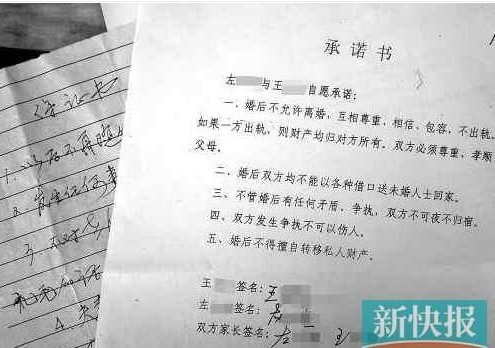 承诺书
左 与王 自愿承诺：
一、婚后不允许离婚，互相尊重、相信、包容，不出轨。
如果一方出轨，则财产均归对方所有。双方必须尊重、孝顺
父母。
二、婚后双方均不能以各种借口送未婚人士回家。
三、不管婚后有任何矛盾、争执，双方不可夜不归宿。
四、双方发生争执不可以伤人。
五、婚后不得擅自转移私人财产。
王 签名：王
左 签名：左
双方家长签名：左 王
保证书
1、以后不再
2、
3、
4、
新快报